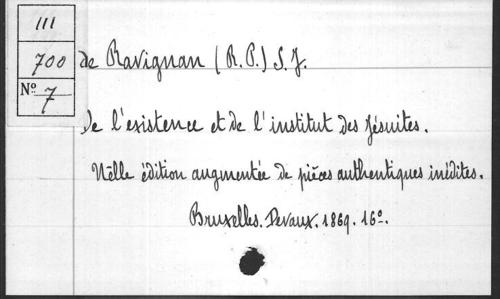 III
700
Nº 7
de Ravignan (R.P.) S.J.
De l'existence et de l'institut des Jésuites.
Nelle édition augmentée de pièces authentiques inédites.
Bruxelles. Devaux. 1869. 16º.